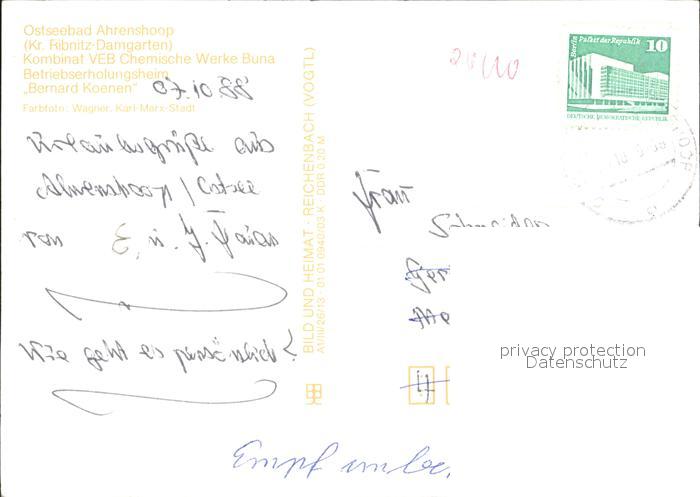 Ostseebad Ahrenshoop
(Kr. Ribnitz-Damgarten)
Kombinat VEB Chemische Werke Buna
Betriebserholungsheim
„Bernard Koenen"
Farbfoto: Wagner, Karl-Marx-Stadt
07.10.88
Urlaubsgrüße aus
Ahrenshoop / Ostsee
von E. u. J.
Wie geht es persönlich?
BILD UND HEIMAT · REICHENBACH (VOGTL)
A1/III/26/13 · 01 01 0940/03 K · DDR 0,20 M
Berlin Palast der Republik
10
DEUTSCHE DEMOKRATISCHE REPUBLIK
Frau
privacy protection
Datenschutz
Empf unbe.